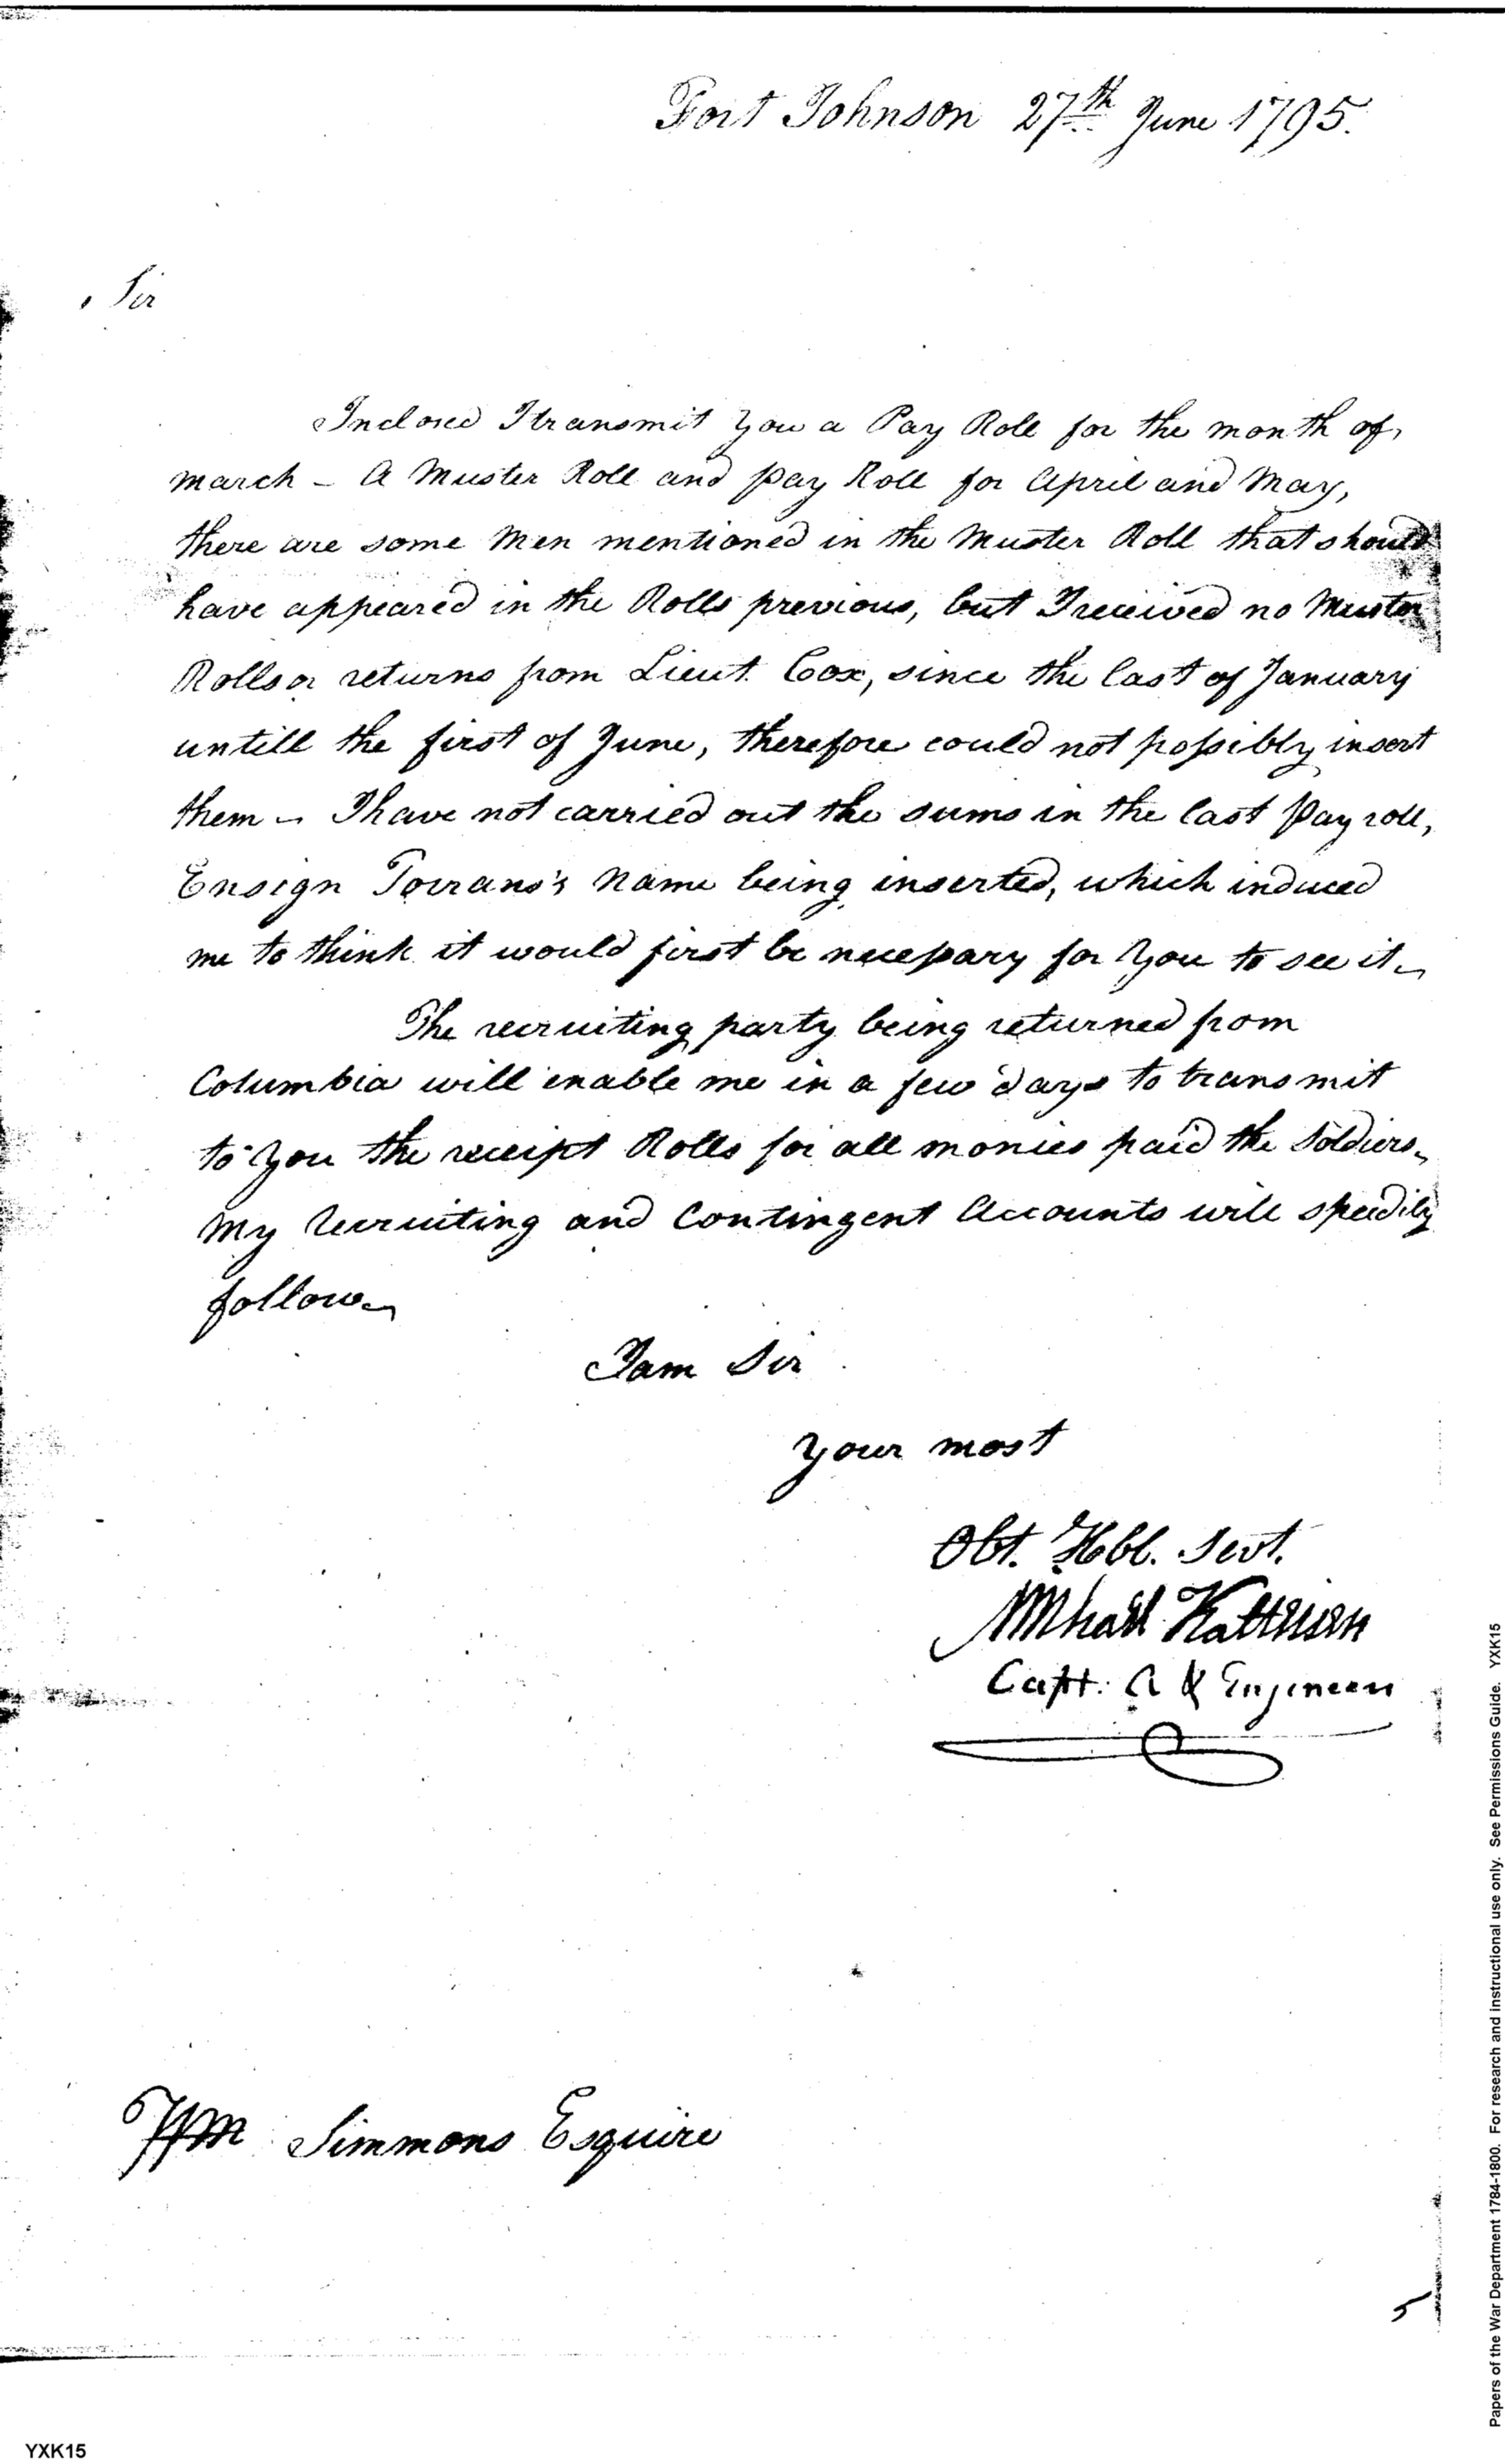 Fort Johnson 27th June 1795.
Sir
Inclosed I transmit you a Pay Roll for the month of,
march - A Muster Roll and pay Roll for April and May,
there are some Men mentioned in the Muster Roll that should
have appeared in the Rolls previous, but I received no Muster
Rolls or returns from Lieut. Cox, since the last of January
untill the first of June, therefore could not possibly insert
them - I have not carried out the sums in the last Pay roll,
Ensign Torrans's Name being inserted, which induced
me to think it would first be necessary for you to see it -
The recruiting party being returned from
Columbia will enable me in a few days to transmit
to you the receipt Rolls for all monies paid the Soldiers -
My Recruiting and Contingent Accounts will speedily
follow -
I am Sir
your most
Obt. Hbl. Servt.
Michael Kalteisen
Capt: A & Engineers
Wm Simmons Esquire
5
YXK15
Papers of the War Department 1784-1800. For research and instructional use only. See Permissions Guide. YXK15